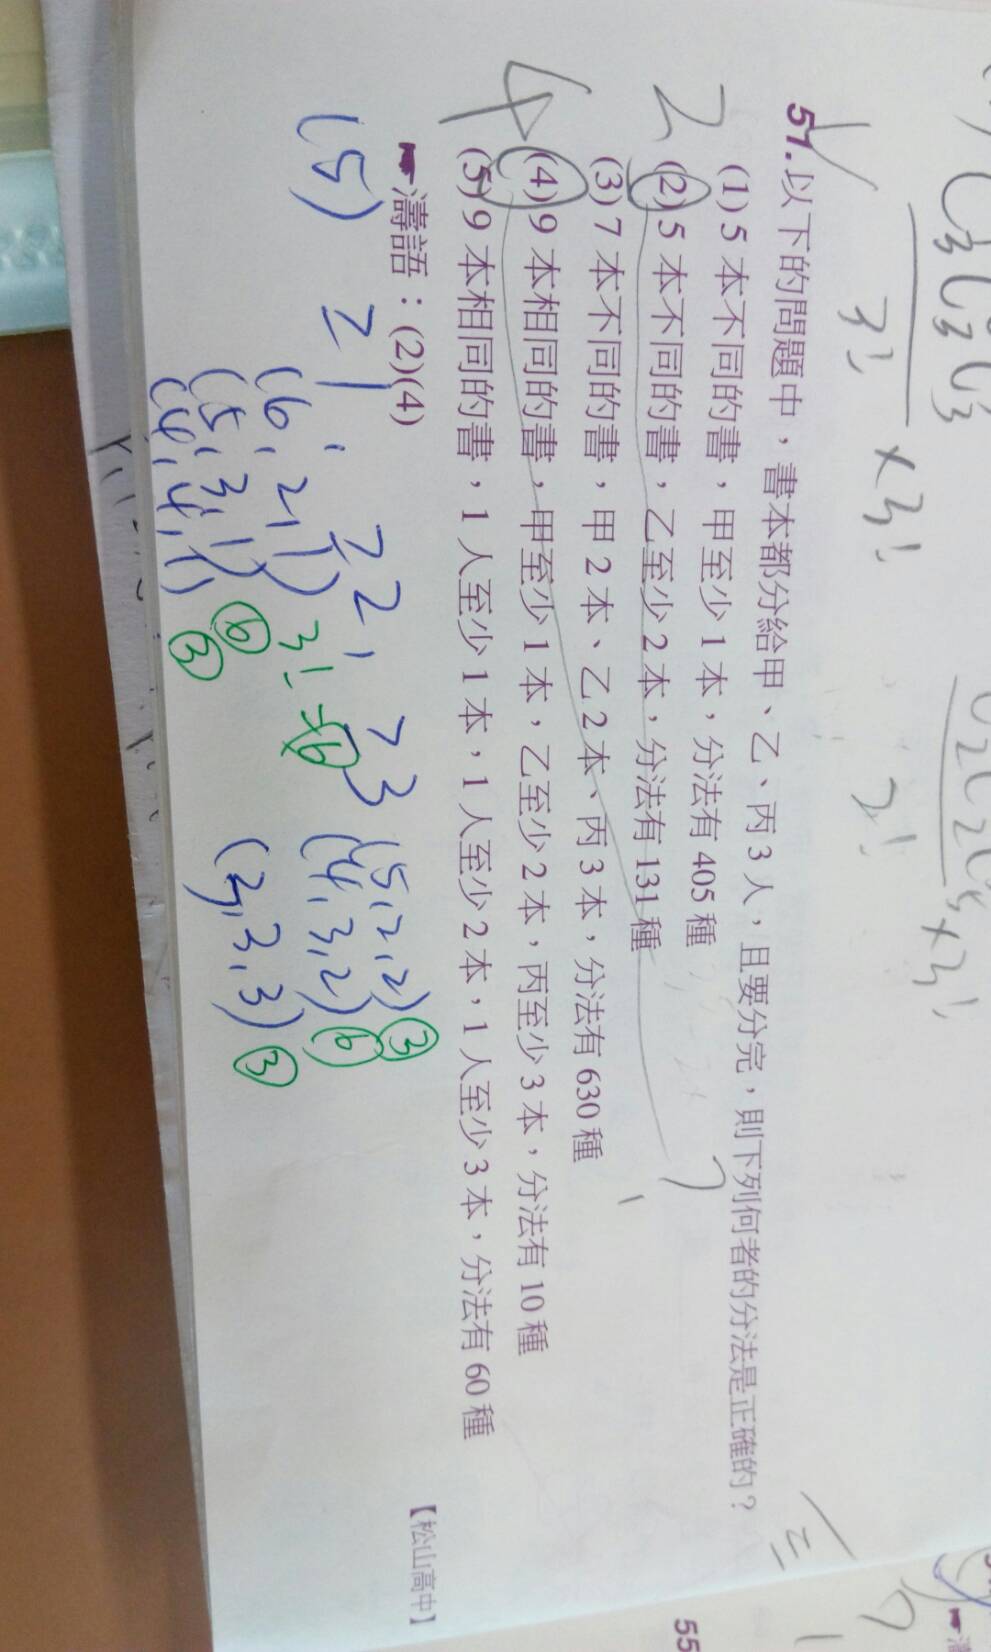 51.以下的問題中，書本都分給甲、乙、丙 3 人，且要分完，則下列何者的分法是正確的？
(1) 5 本不同的書，甲至少 1 本，分法有 405 種
(2) 5 本不同的書，乙至少 2 本，分法有 131 種
(3) 7 本不同的書，甲 2 本、乙 2 本、丙 3 本，分法有 630 種
(4) 9 本相同的書，甲至少 1 本，乙至少 2 本，丙至少 3 本，分法有 10 種
(5) 9 本相同的書，1 人至少 1 本，1 人至少 2 本，1 人至少 3 本，分法有 60 種
☛濤語：(2)(4)
【松山高中】
2
4
3!
×3!
2!
×3!
(5)
≥1, ≥2, ≥3
(6,2,1) 3!=6
(5,3,1) 6
(4,4,1) 3
(5,2,2) 3
(4,3,2) 6
(3,3,3) 3
55